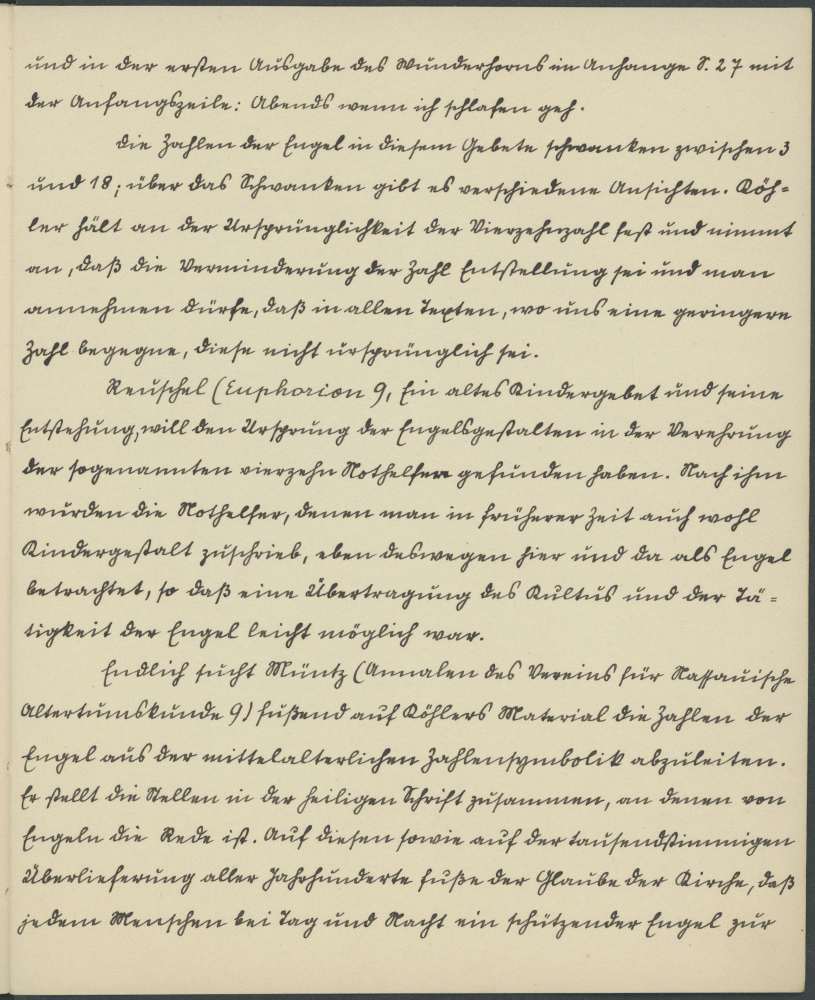 und in der ersten Ausgabe des Wunderhorns im Anhange S. 27 mit
der Anfangszeile: Abends wenn ich schlafen geh.
Die Zahlen der Engel in diesem Gebete schwanken zwischen 3
und 18; über das Schwanken gibt es verschiedene Ansichten. Köh=
ler hält an der Ursprünglichkeit der Vierzehnzahl fest und nimmt
an, daß die Verminderung der Zahl Entstellung sei und man
annehmen dürfe, daß in allen Texten, wo uns eine geringere
Zahl begegne, diese nicht ursprünglich sei.
Reuschel (Euphorion 9, Ein altes Kindergebet und seine
Entstehung, will den Ursprung der Engelsgestalten in der Verehrung
der sogenannten vierzehn Nothelfer gefunden haben. Nach ihm
wurden die Nothelfer, denen man in früherer Zeit auch wohl
Kindergestalt zuschrieb, eben deswegen hier und da als Engel
betrachtet, so daß eine Übertragung des Kultus und der Tä=
tigkeit der Engel leicht möglich war.
Endlich sucht Müntz (Annalen des Vereins für Nassauische
Altertumskunde 9) fußend auf Köhlers Material die Zahlen der
Engel aus der mittelalterlichen Zahlensymbolik abzuleiten.
Er stellt die Stellen in der heiligen Schrift zusammen, an denen von
Engeln die Rede ist. Auf diesen sowie auf der tausendstimmigen
Überlieferung aller Jahrhunderte fuße der Glaube der Kirche, daß
jedem Menschen bei Tag und Nacht ein schützender Engel zur